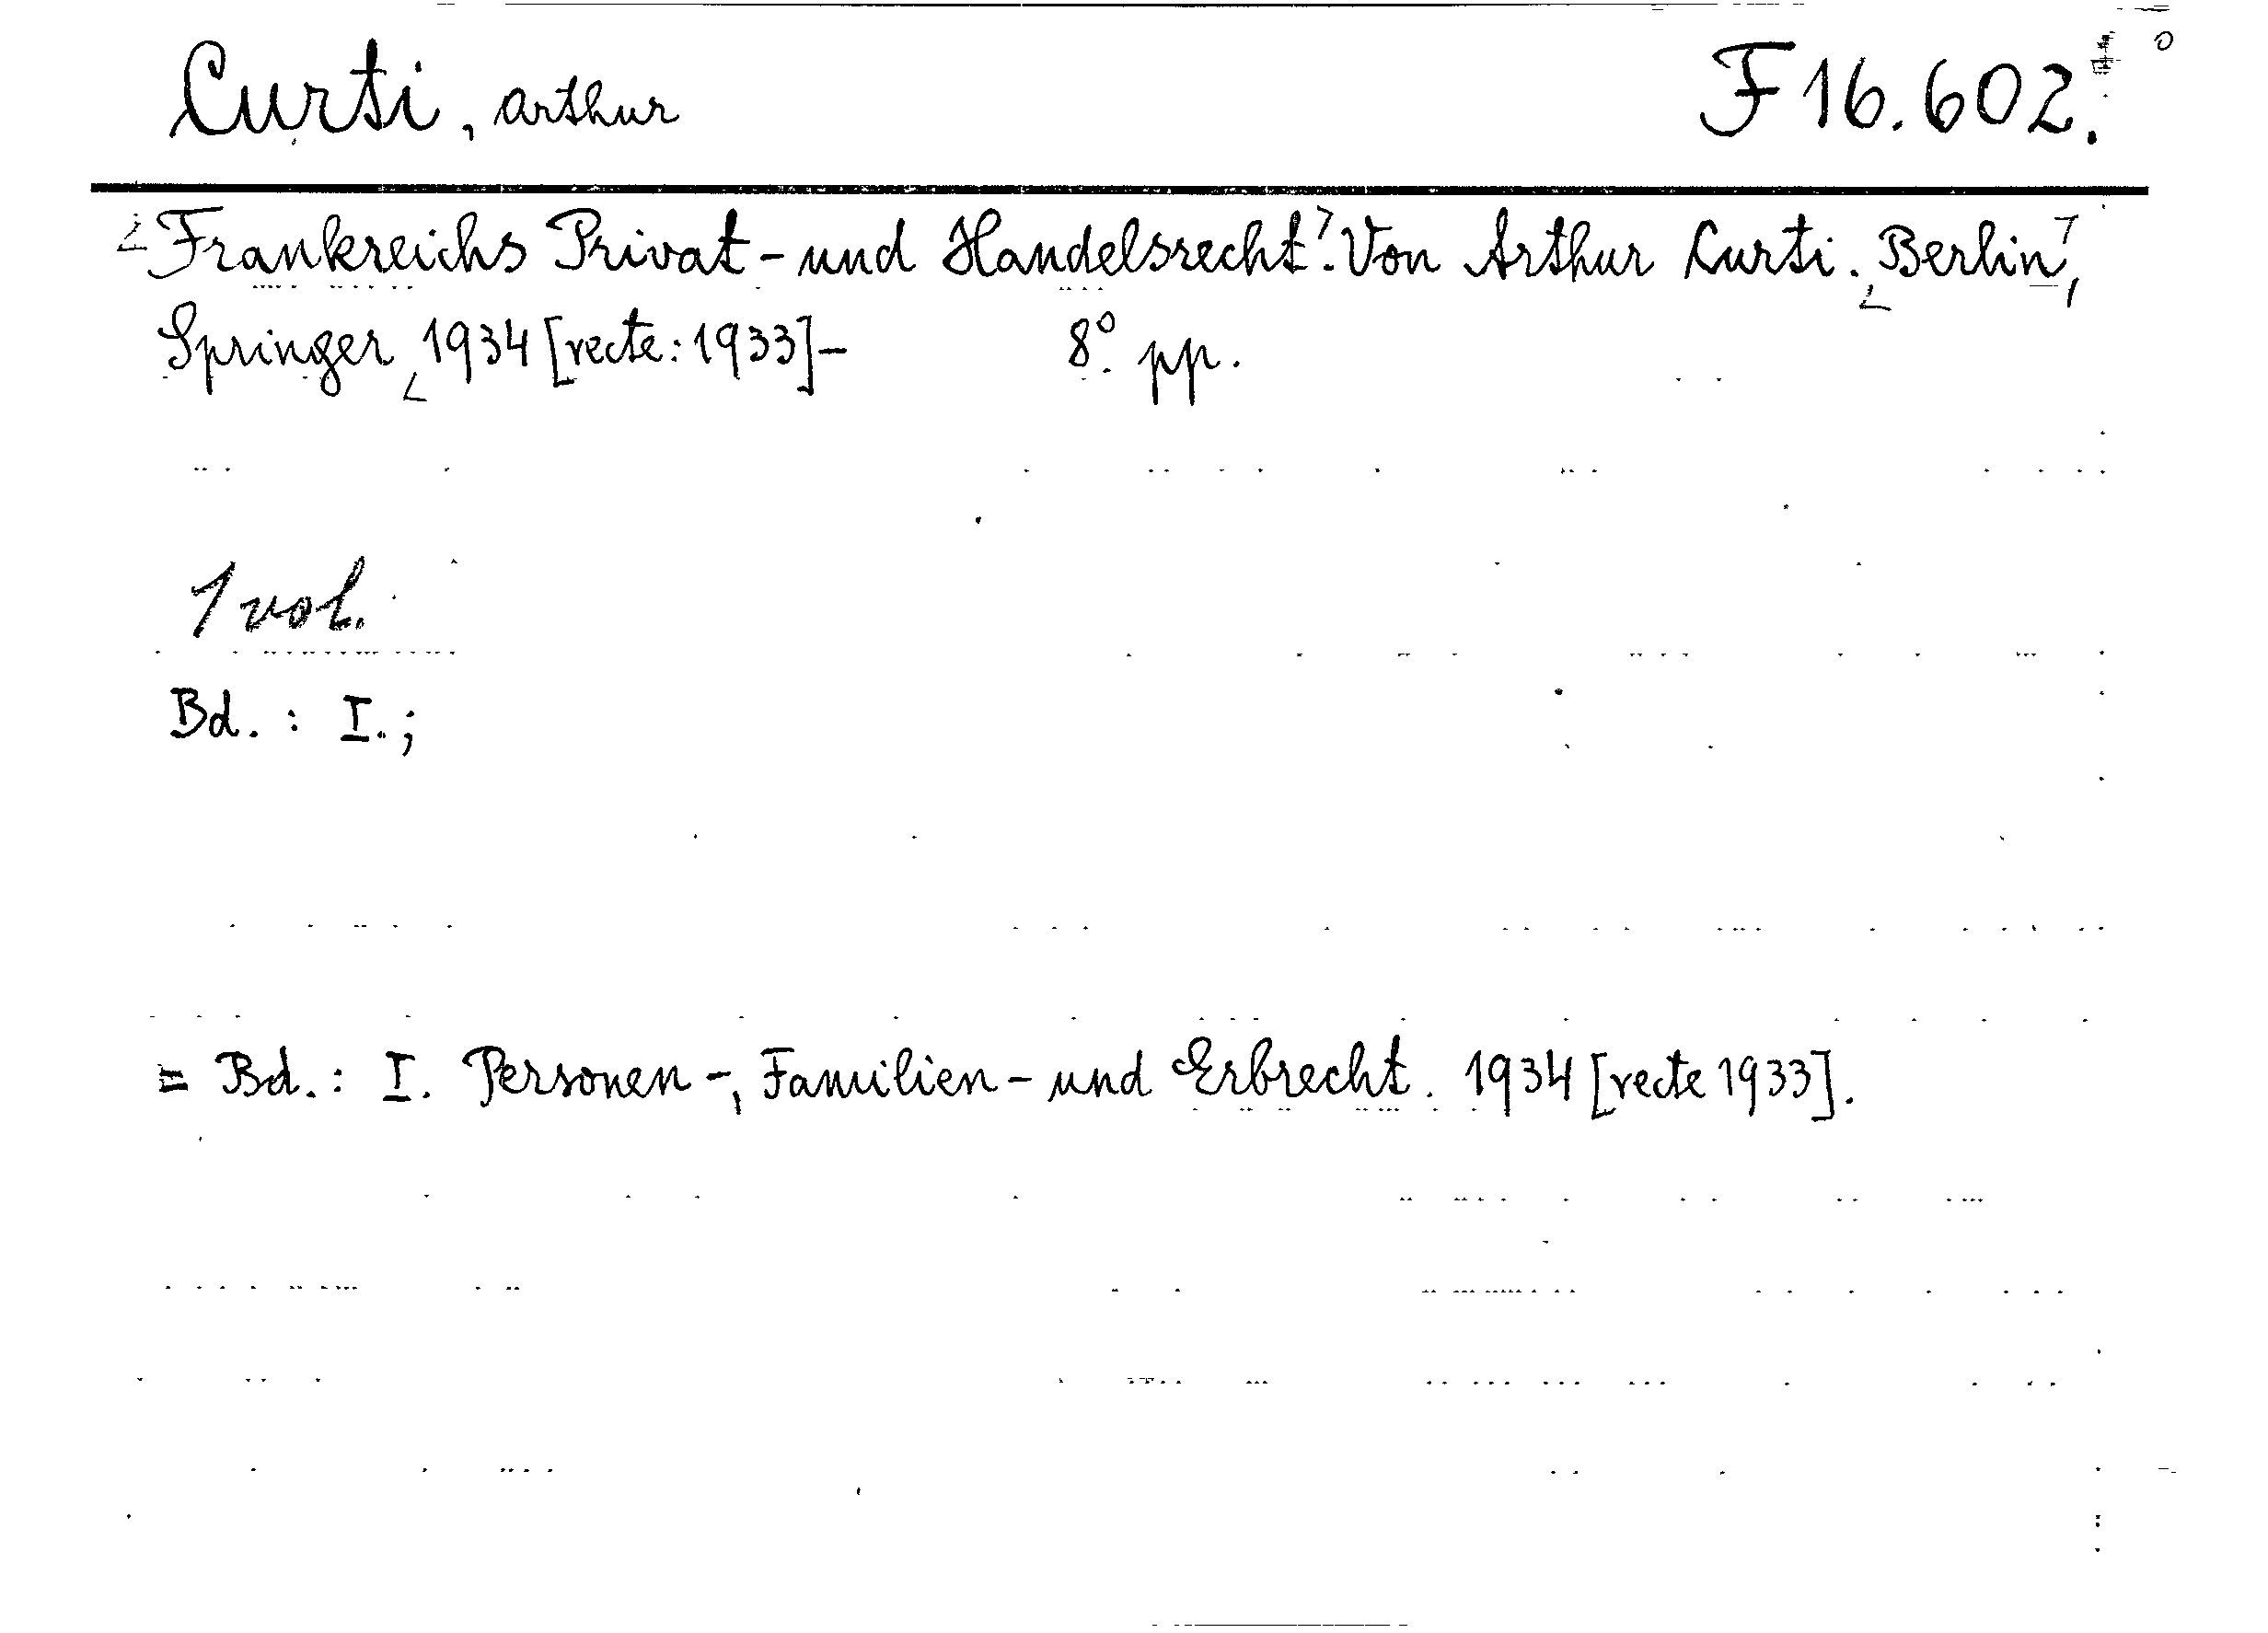 Curti, Arthur F 16.602.
Frankreichs Privat- und Handelsrecht. Von Arthur Curti. Berlin,
Springer 1934 [recte: 1933]- 8° pp.
1 vol.
Bd. : I. ;
= Bd. : I. Personen-, Familien- und Erbrecht. 1934 [recte 1933].